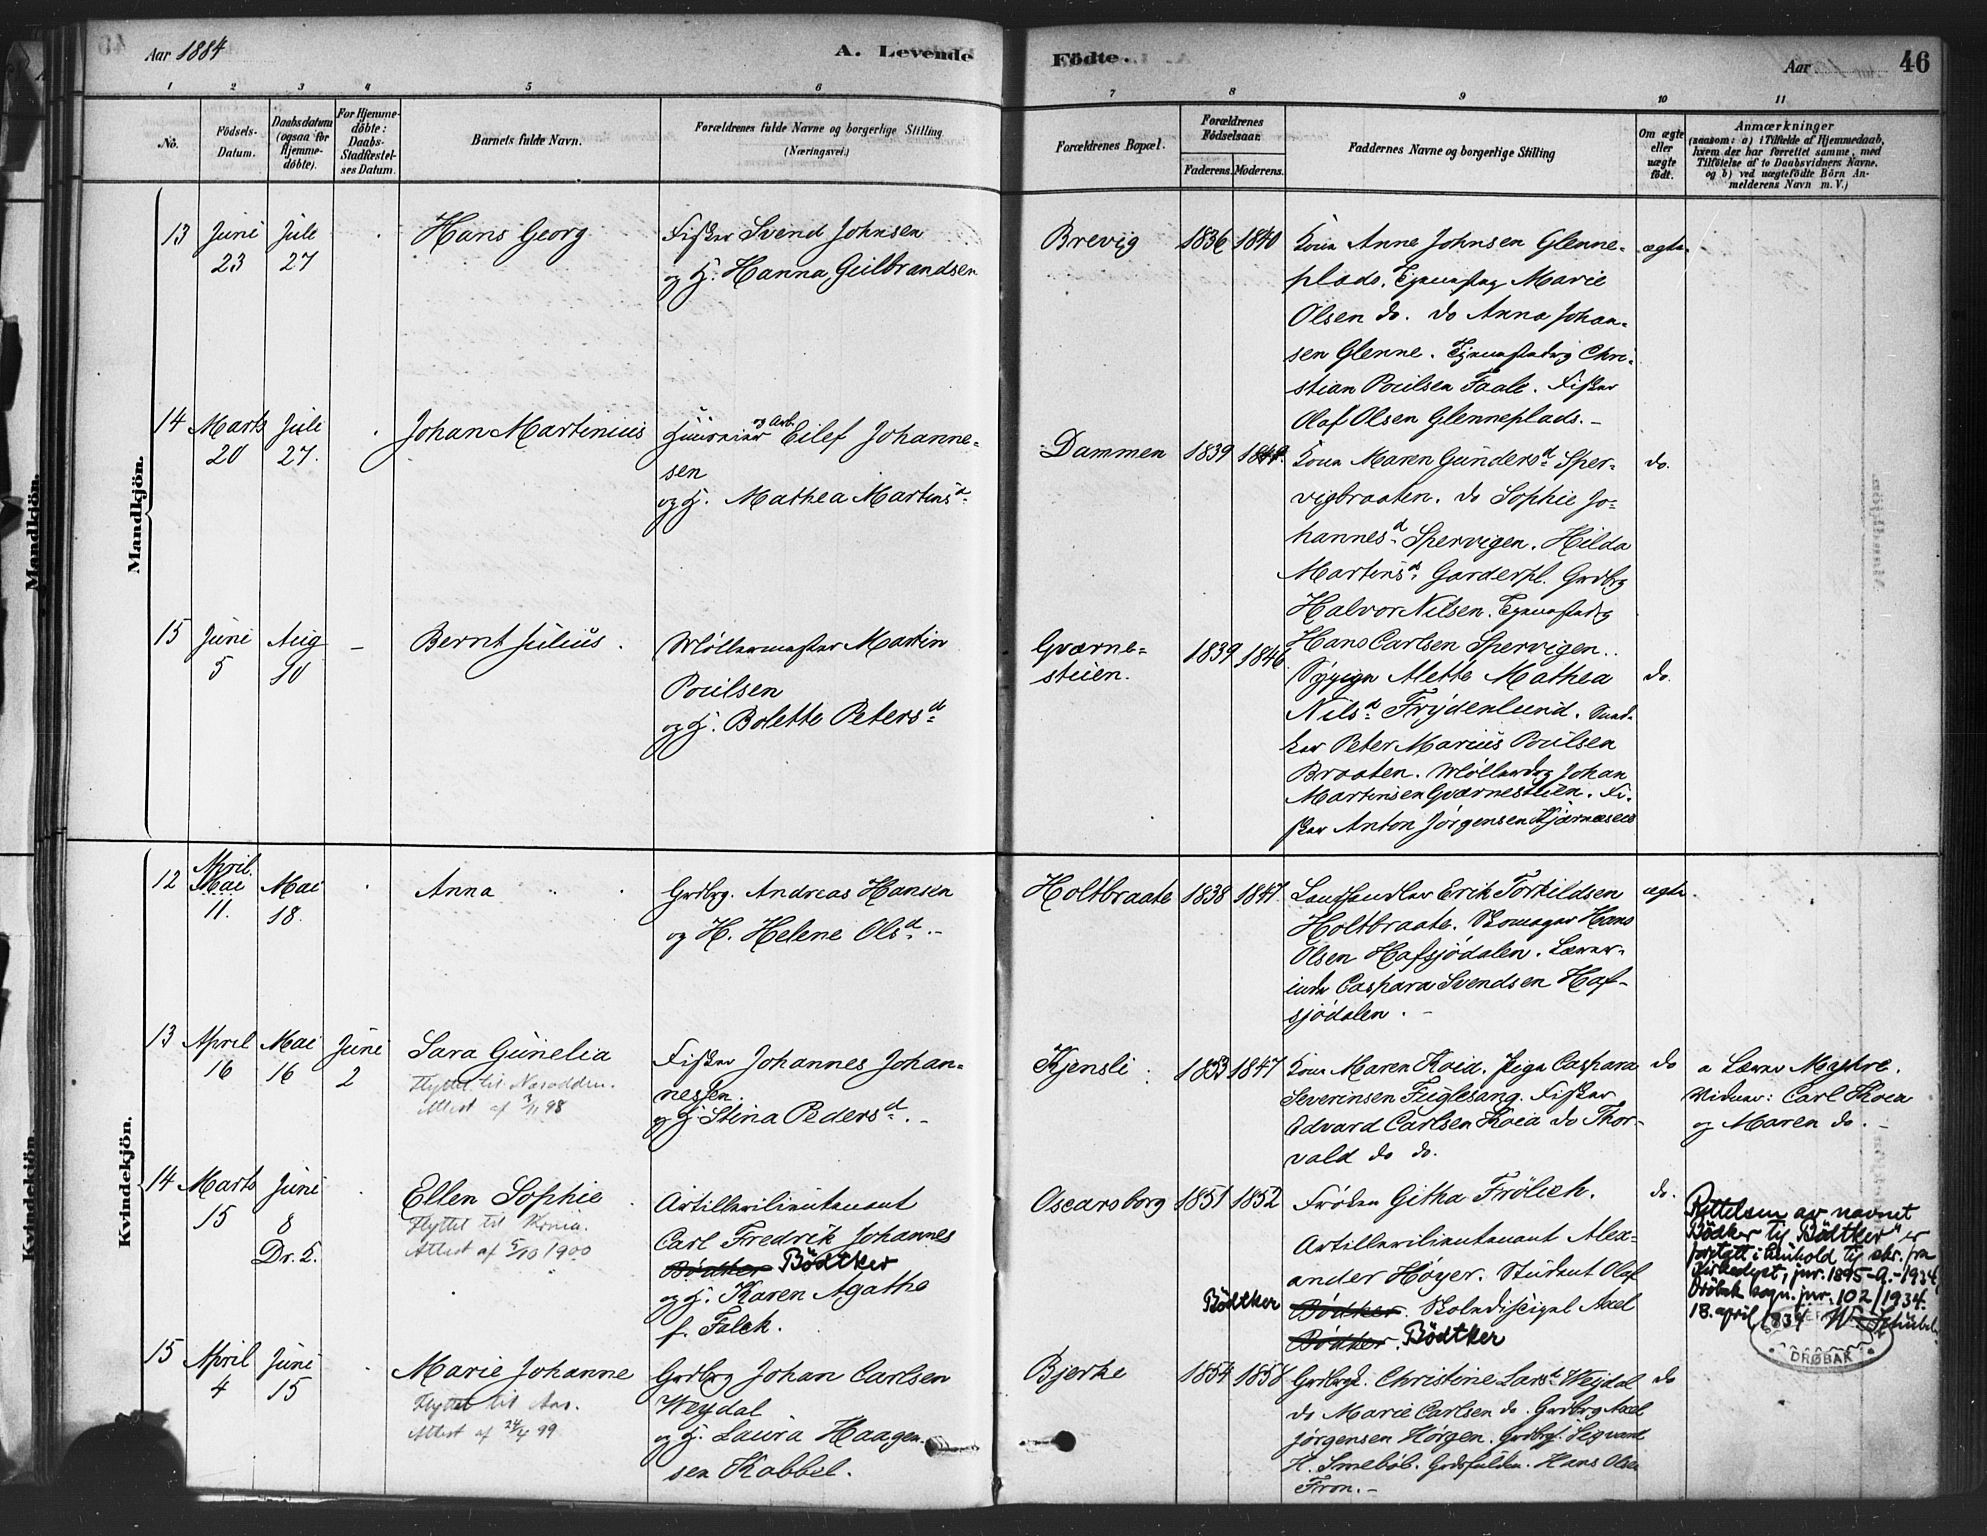 Aar 1884
A. Levende
Födte.
Aar
46
1 2 3 4 5 6 7 8 9 10 11
No.
Födsels-
Datum.
Daabsdatum
(ogsaa for
Hjemme-
döbte).
For Hjemme-
döbte:
Daabs-
Stadfæstel-
ses Datum.
Barnets fulde Navn.
Forældrenes fulde Navne og borgerlige Stilling
(Næringsvei.)
Forældrenes Bopæl.
Forældrenes
Födselsaar.
Faderens. Moderens.
Faddernes Navne og borgerlige Stilling
Om ægte
eller
uægte
født.
Anmærkninger
(saasom: a) i Tilfælde af Hjemmedaab,
hvem der har forrettet samme, med
Tilföielse af to Daabsvidners Navne.
og b) ved uægtefödte Börn An-
melderens Navn m. V.)
Mandkjön.
13
Juni
23
Juli
27
Hans Georg
Fisker Svend Johnsen
og H. Hanna Gulbrandsen
Brevig
1836
1840
Kone Anne Johnsen Glenne-
plads. Marie
Olsen do. do Anna Johan-
sen Glenne. Chri-
stian Poulsen Faale. Fisker
Olaf Olsen Glenneplads.-
ægte
14
Marts
20
Juli
27.
Johan Martinius
og Arb. Eilef Johanne-
sen
og H. Mathea Martinsd.
Dammen
1839
Kone Maren Gundersd. Sper-
vigbraaten. do Sophie Jo-
hannesd. Spervigen. Hilda
Martinsd. Garderpl. Grdbrg
Halvor Nilsen.
Hans Carlsen Spervigen.
do.
15
Juni
5
Aug
10
Bernt Julius.
Møllermester Martin
Poulsen
og H. Bolette Petersd.
Gværne-
stuen.
1839
1846
Sypige Alette Mathea
Nilsd. Frydenlund.
Peter Marius Poulsen
Braaten. Johan
Martinsen Gværnestuen. Fi-
sker Anton Jørgensen Kjærnæs
do.
Kvindekjön.
12
April.
Mai
11.
Mai
18.
Anna
Grdbrg. Andreas Hansen
og H. Helene Olsd.-
Holtbraate
1838
1847.
Landhandler Erik Torkildsen
Holtbraate. Skomager Hans
Olsen Hafsjødalen. Lærer-
inde Caspara Svendsen Haf-
sjødalen.-
ægte
13
April
16
Mai
16
Juni
2
Sara Gunelia
Flyttet til Nesodden.
Attest af 3/11 98
Fisker Johannes Johan-
nessen.
og H. Stina Pedersd.-
Kjensli
1853
1847
Kone Maren Koia. Pige Caspara
Severinsen Fuglesang. Fisker
Edvard Carlsen Koia do Thor-
vald do do.
do
a Lærer Mystre.
Vidner: Carl Koia
og Maren do.-
14
Marts
15
Juni
8
Dr. K.
Ellen Sophie
Flyttet til Kr.nia.
Attest af 5/10 1900
Artillerilieutenant
Carl Fredrik Johannes
Bødker Bödtker
og H. Karen Agathe
f. Falck.
Oscarsborg
1851
1852
Frøken Githa Frölich.
Artillerilieutenant Alex-
ander Høyer. Student Olaf
Bödtker Bødker. Skolediscipel Axel
Bødker. Bödtker
do.
Rettelsen av navnet
Bödker til "Bödtker" er
foretatt i henhold til skr. fra
Kirkedept, jnr. 1895-A-1934,
Drøbak sogn. jnr. 102/1934.
18. april 1934
DRØBAK
15
April
4
Juni
15
Marie Johanne
Flyttet til Aas.
Attest af 24/4 99
Grdbrg Johan Carlsen
Weydal
og H. Laura Haagen-
sen Kabbel.
Bjerke
1854
1858
Grdbrgk. Christine Larsd. Weydal
do Marie Carlsen do. Grdbrg Axel
Jørgensen Hørgen. Grdbrgs. Sigvard
H. Smebøl. Hans Olsen
Fron.-
do